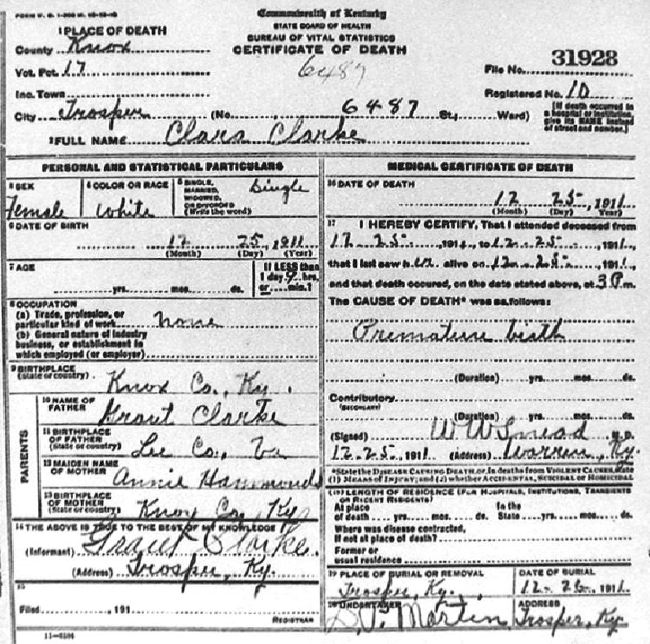 Commonwealth of Kentucky
STATE BOARD OF HEALTH
BUREAU OF VITAL STATISTICS
CERTIFICATE OF DEATH
1 PLACE OF DEATH
County Knox
Vot. Pct. 17
Inc. Town
City Trosper (No. 6487 St., Ward)
6487
File No. 31928
Registered No. 10
(If death occurred in a hospital or institution, give its NAME instead of street and number.)
2 FULL NAME Clara Clarke
PERSONAL AND STATISTICAL PARTICULARS
3 SEX Female
4 COLOR OR RACE White
5 SINGLE, MARRIED, WIDOWED, OR DIVORCED (Write the word) Single
6 DATE OF BIRTH 12 25, 1911
(Month) (Day) (Year)
7 AGE yrs. mos. ds.
If LESS than 1 day, 4 hrs. or min.?
8 OCCUPATION
(a) Trade, profession, or particular kind of work None
(b) General nature of industry business, or establishment in which employed (or employer)
9 BIRTHPLACE (State or country) Knox Co., Ky.
PARENTS
10 NAME OF FATHER Grant Clarke
11 BIRTHPLACE OF FATHER (State or country) Lee Co., Va
12 MAIDEN NAME OF MOTHER Annie Hammonds
13 BIRTHPLACE OF MOTHER (State or country) Knox Co., Ky
14 THE ABOVE IS TRUE TO THE BEST OF MY KNOWLEDGE
(Informant) Grant Clarke.
(Address) Trosper, Ky.
15
Filed, 191
REGISTRAR
MEDICAL CERTIFICATE OF DEATH
16 DATE OF DEATH 12 25, 1911
(Month) (Day) (Year)
17 I HEREBY CERTIFY, That I attended deceased from
12 25, 1911, to 12 25, 1911,
that I last saw her alive on 12 25, 1911,
and that death occured, on the date stated above, at 3 P.m.
The CAUSE OF DEATH* was as follows:
Premature birth
(Duration) yrs. mos. ds.
Contributory
(SECONDARY)
(Duration) yrs. mos. ds.
(Signed) W W Smead M.D.
12-25, 1911 (Address) Warren, Ky.
*State the DISEASE CAUSING DEATH, or, in deaths from VIOLENT CAUSES, state (1) MEANS OF INJURY; and (2) whether ACCIDENTAL, SUICIDAL or HOMICIDAL
18 LENGTH OF RESIDENCE (FOR HOSPITALS, INSTITUTIONS, TRANSIENTS OR RECENT RESIDENTS)
At place of death yrs. mos. ds. In the State yrs. mos. ds.
Where was disease contracted, if not at place of death?
Former or usual residence
19 PLACE OF BURIAL OR REMOVAL Trosper, Ky.
DATE OF BURIAL 12 26, 1911
20 UNDERTAKER Martin
ADDRESS Trosper, Ky.
11-5184